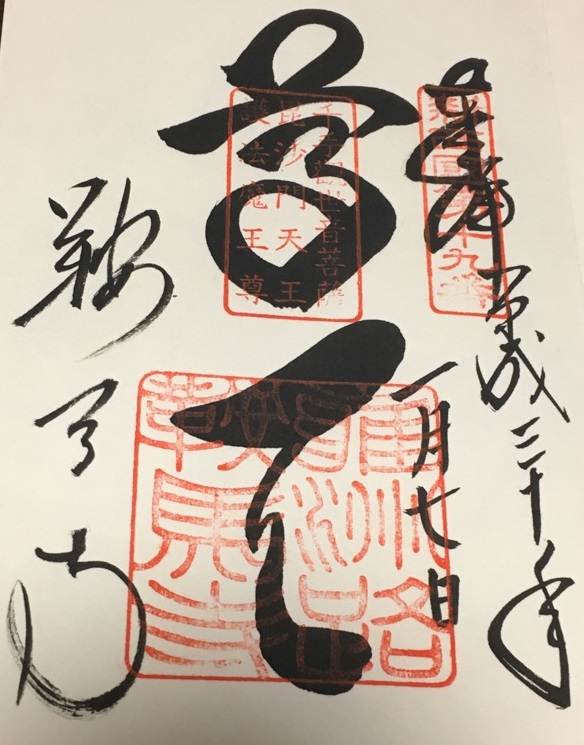 奉拝
平成三十年
一月七日
尊天
鞍馬山
千手觀世音菩薩
毘沙門天王
護法魔王尊
鞍馬寺